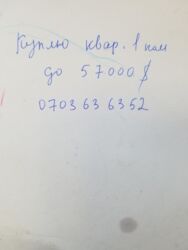 Куплю квар. 1 ком
до 57000 $
0703 63 63 52